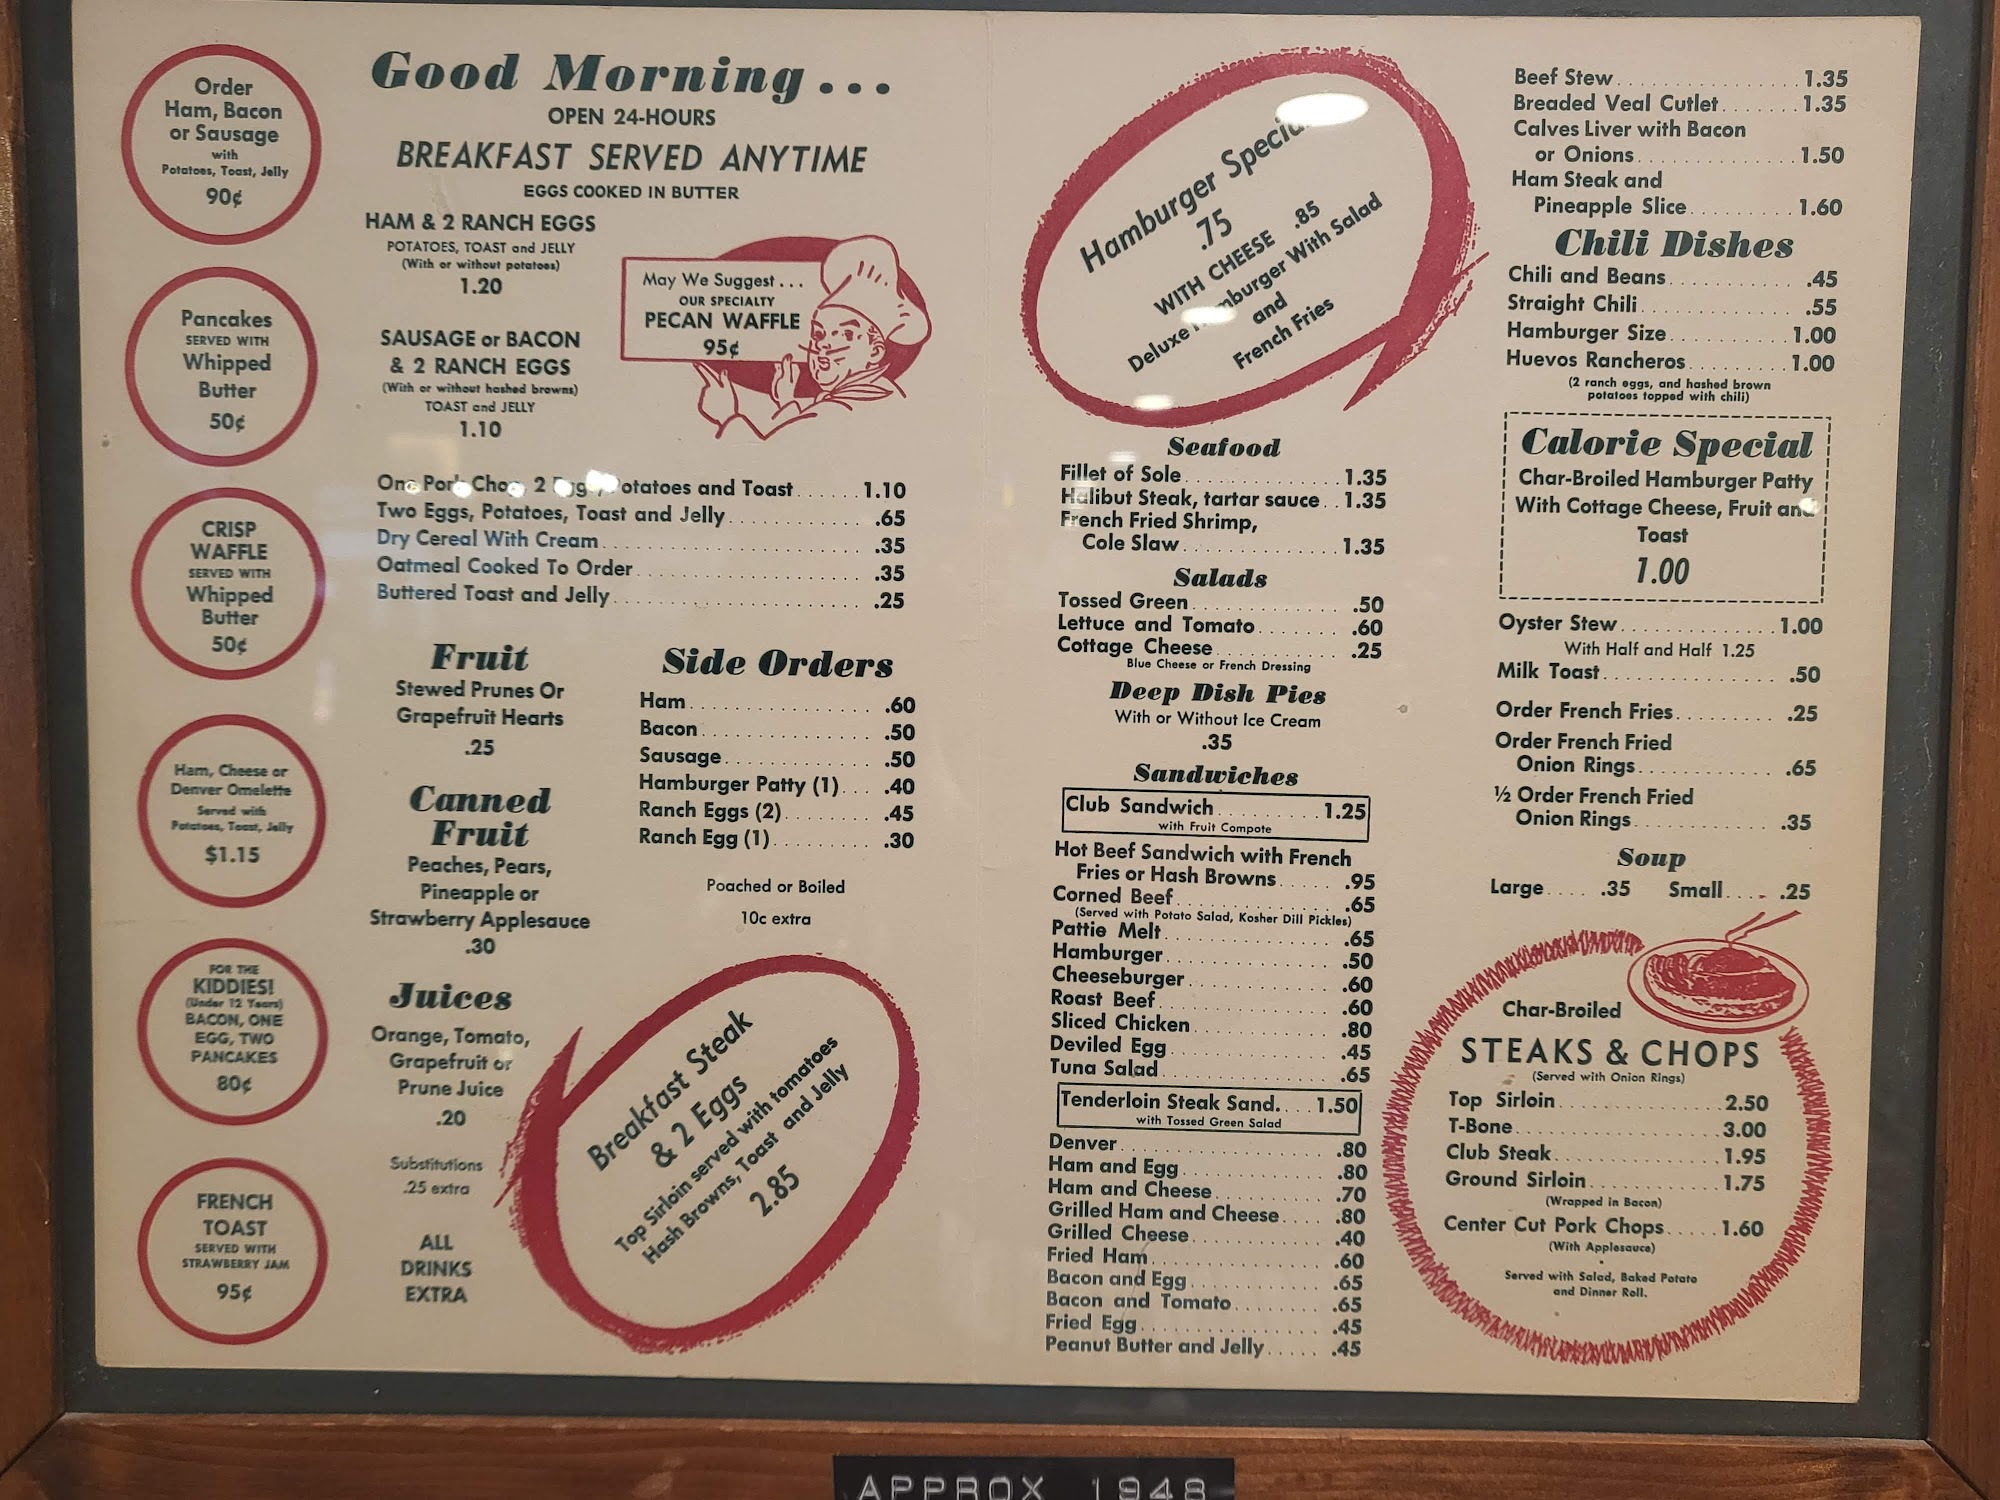 Order
Ham, Bacon
or Sausage
with
Potatoes, Toast, Jelly
90¢
Pancakes
SERVED WITH
Whipped
Butter
50¢
CRISP
WAFFLE
SERVED WITH
Whipped
Butter
50¢
Ham, Cheese or
Denver Omelette
Served with
Potatoes, Toast, Jelly
$1.15
FOR THE
KIDDIES!
(Under 12 Years)
BACON, ONE
EGG, TWO
PANCAKES
80¢
FRENCH
TOAST
SERVED WITH
STRAWBERRY JAM
95¢
Good Morning...
OPEN 24-HOURS
BREAKFAST SERVED ANYTIME
EGGS COOKED IN BUTTER
HAM & 2 RANCH EGGS
POTATOES, TOAST and JELLY
(With or without potatoes)
1.20
SAUSAGE or BACON
& 2 RANCH EGGS
(With or without hashed browns)
TOAST and JELLY
1.10
May We Suggest...
OUR SPECIALTY
PECAN WAFFLE
95¢
One Pork Chop, 2 Eggs, Potatoes and Toast......1.10
Two Eggs, Potatoes, Toast and Jelly.............65
Dry Cereal With Cream.............35
Oatmeal Cooked To Order.............35
Buttered Toast and Jelly.............25
Fruit
Stewed Prunes Or
Grapefruit Hearts
.25
Canned
Fruit
Peaches, Pears,
Pineapple or
Strawberry Applesauce
.30
Juices
Orange, Tomato,
Grapefruit or
Prune Juice
.20
Substitutions
.25 extra
ALL
DRINKS
EXTRA
Side Orders
Ham.............60
Bacon.............50
Sausage.............50
Hamburger Patty (1)... .40
Ranch Eggs (2)........ .45
Ranch Egg (1)......... .30
Poached or Boiled
10c extra
Breakfast Steak
& 2 Eggs
Top Sirloin served with tomatoes
Hash Browns, Toast and Jelly
2.85
Hamburger Special
.75
WITH CHEESE .85
Deluxe Hamburger With Salad
and
French Fries
Seafood
Fillet of Sole.............1.35
Halibut Steak, tartar sauce..1.35
French Fried Shrimp,
Cole Slaw.............1.35
Salads
Tossed Green............. .50
Lettuce and Tomato....... .60
Cottage Cheese............ .25
Blue Cheese or French Dressing
Deep Dish Pies
With or Without Ice Cream
.35
Sandwiches
Club Sandwich.........1.25
with Fruit Compote
Hot Beef Sandwich with French
Fries or Hash Browns..... .95
Corned Beef............. .65
(Served with Potato Salad, Kosher Dill Pickles)
Pattie Melt............. .65
Hamburger............. .50
Cheeseburger............. .60
Roast Beef............. .60
Sliced Chicken............. .80
Deviled Egg............. .45
Tuna Salad............. .65
Tenderloin Steak Sand....1.50
with Tossed Green Salad
Denver............. .80
Ham and Egg............. .80
Ham and Cheese........... .70
Grilled Ham and Cheese.... .80
Grilled Cheese............. .40
Fried Ham............. .60
Bacon and Egg............. .65
Bacon and Tomato......... .65
Fried Egg............. .45
Peanut Butter and Jelly..... .45
Beef Stew.............1.35
Breaded Veal Cutlet.......1.35
Calves Liver with Bacon
or Onions.............1.50
Ham Steak and
Pineapple Slice.........1.60
Chili Dishes
Chili and Beans............ .45
Straight Chili............. .55
Hamburger Size...........1.00
Huevos Rancheros.........1.00
(2 ranch eggs, and hashed brown
potatoes topped with chili)
Calorie Special
Char-Broiled Hamburger Patty
With Cottage Cheese, Fruit and
Toast
1.00
Oyster Stew.............1.00
With Half and Half 1.25
Milk Toast............. .50
Order French Fries......... .25
Order French Fried
Onion Rings............. .65
½ Order French Fried
Onion Rings............. .35
Soup
Large..... .35 Small..... .25
Char-Broiled
STEAKS & CHOPS
(Served with Onion Rings)
Top Sirloin.............2.50
T-Bone.............3.00
Club Steak.............1.95
Ground Sirloin...........1.75
(Wrapped in Bacon)
Center Cut Pork Chops.....1.60
(With Applesauce)
Served with Salad, Baked Potato
and Dinner Roll.
APPROX 1948